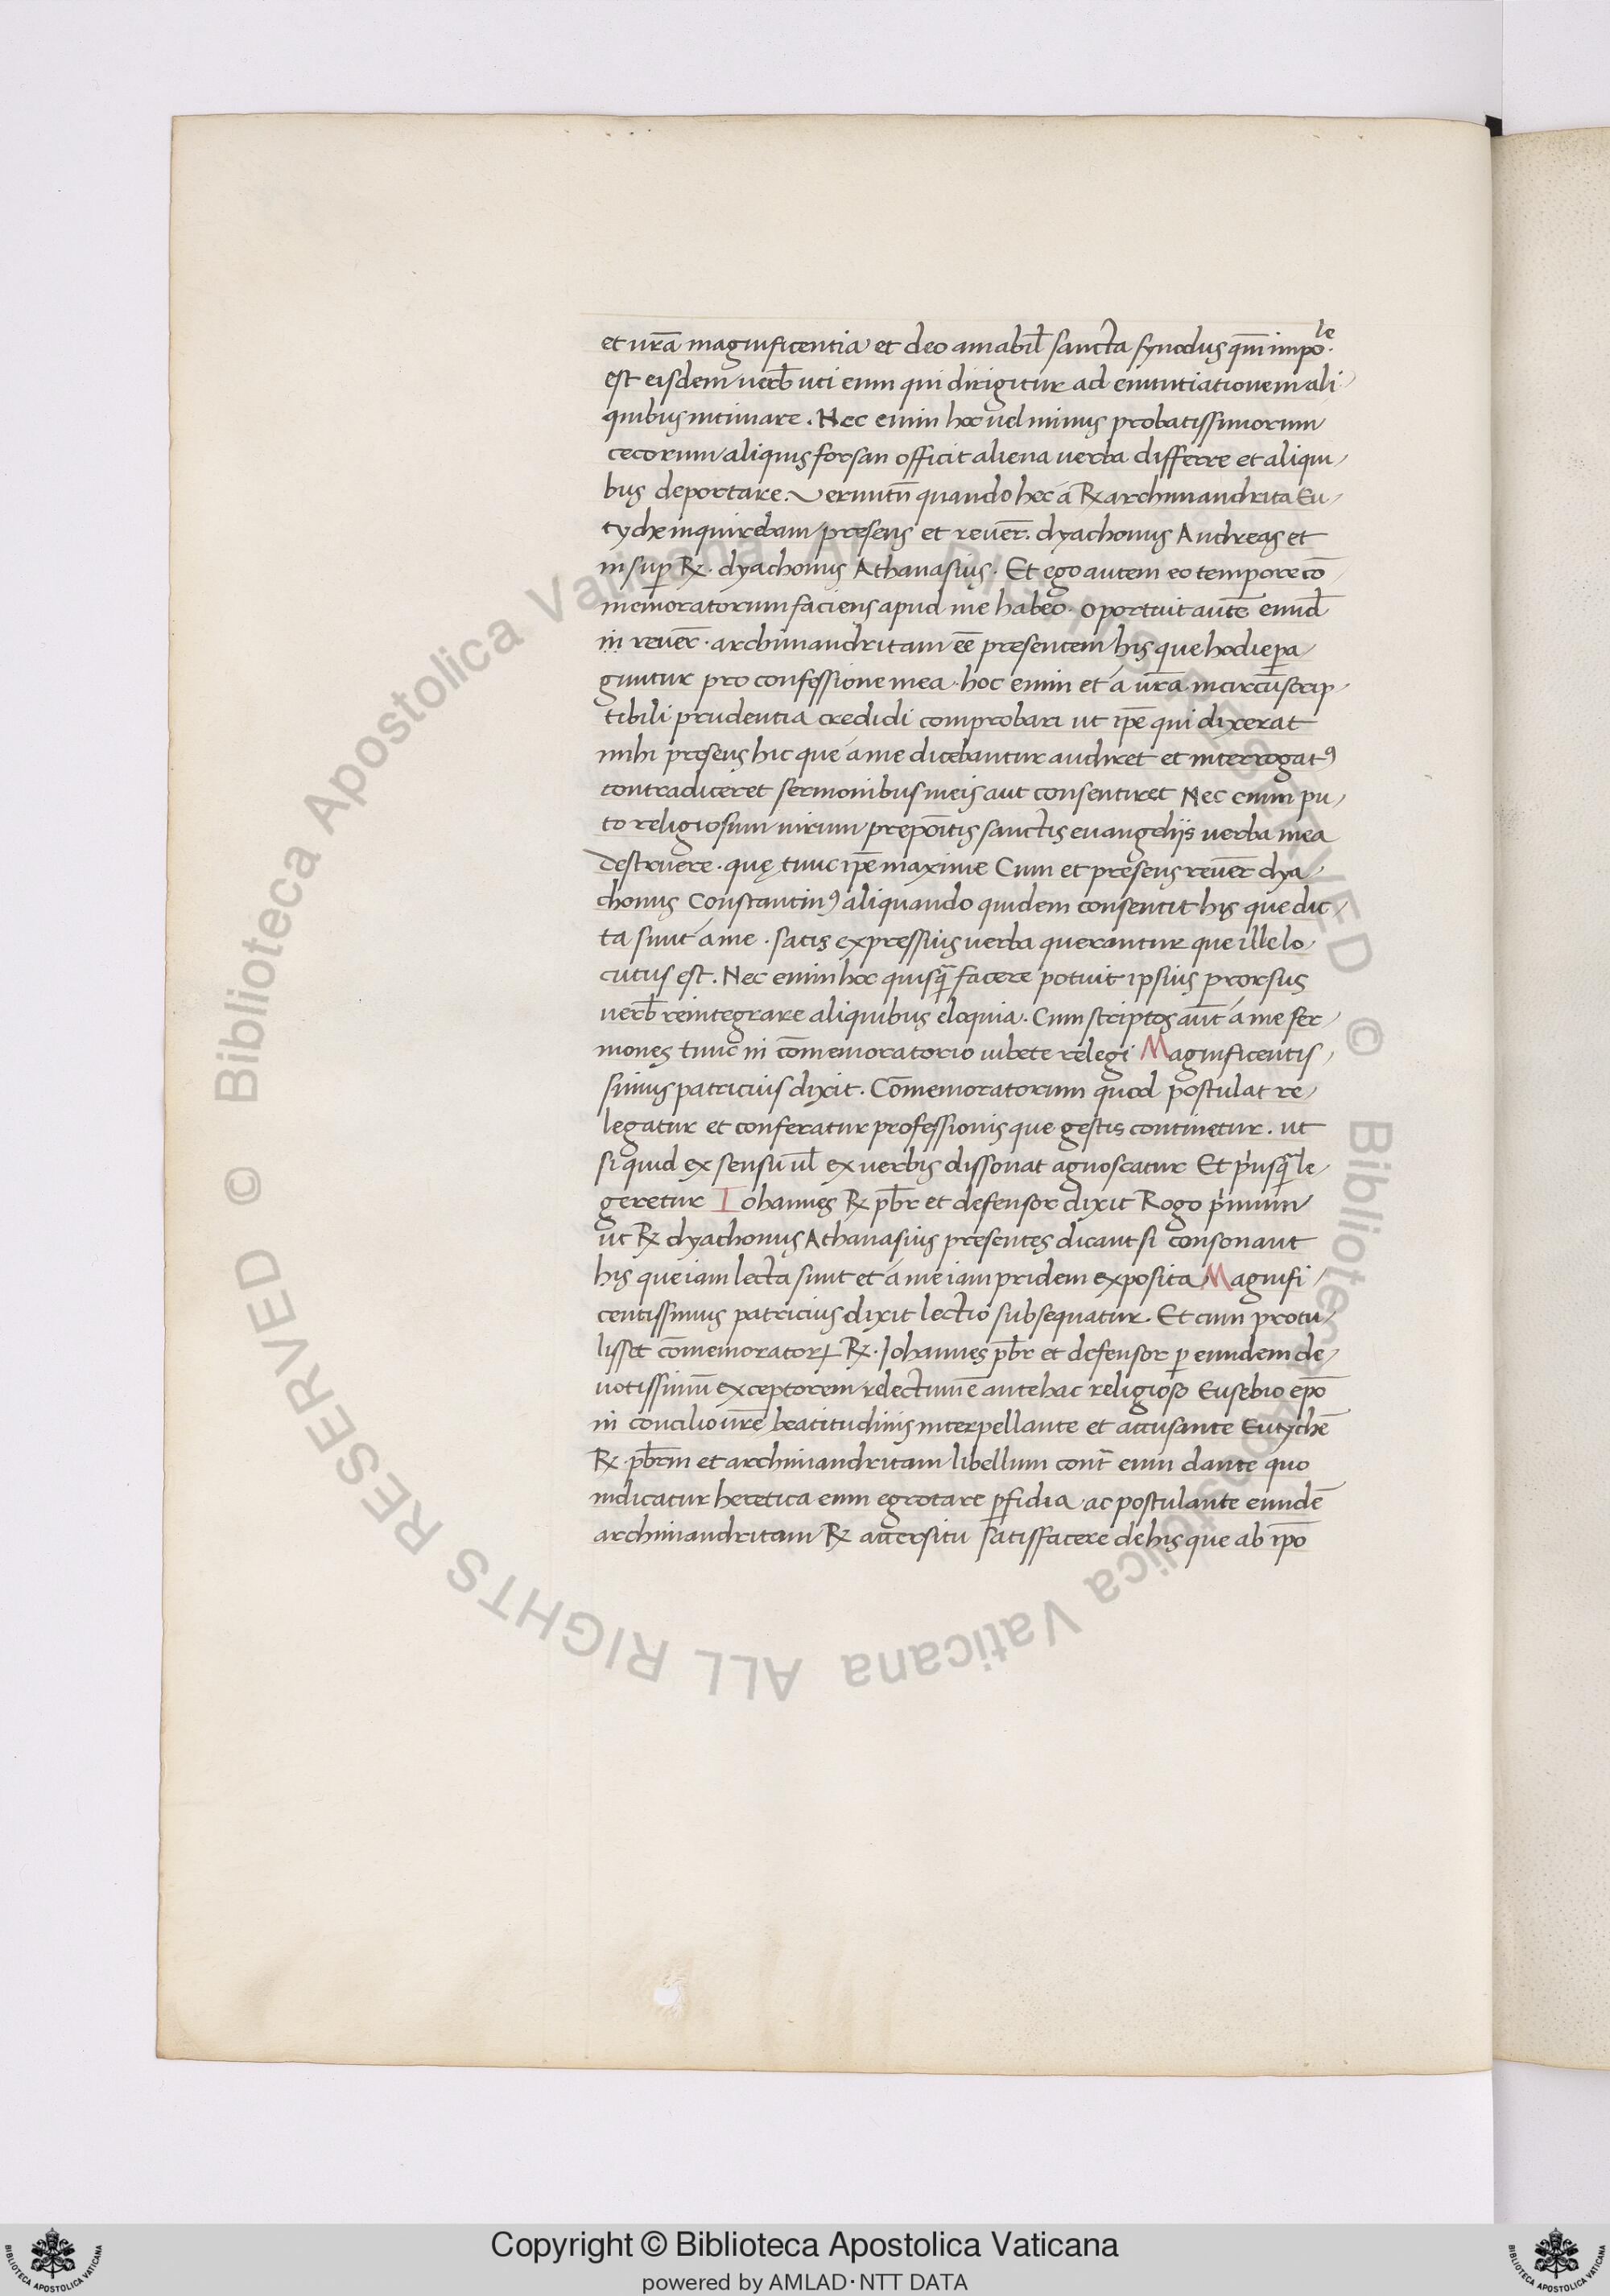 et vr̄a magnificentia et deo amabil̄ sancta synodus qm̄ impo.le
est eisdem verb̄ uti eum qui dirigitur ad enuntiationem ali
quibus intimare. Nec enim hoc vel minus probatissimorum
cecorum aliquis forsan officit aliena verba differre et aliqui
bus deportare. Verumtn̄ quando hec a R͞x archimandrita Eu
tyche inquirebam presens et rever̄. dyachonus Andreas et
insup̄ R͞x. dyachonus Athanasius. Et ego autem eo tempore cō
memoratorum faciens apud me habeo. oportuit autē eund̄
in rever̄. archimandritam eē presentem his que hodie pa
guntur pro confessione mea. hoc enim et a vr̄a incircūscrip
tibili prudentia credidi comprobari ut ip̄e qui dixerat
mihi presens hic que a me dicebantur audiret et interrogatꝰ
contradiceret sermonibus meis aut consentiret Nec enim pu
to religiosum virum prepōitis sanctis evangeliis verba mea
destruere. quę tunc ip̄e maxime Cum et presens rever̄ dya
chonus Constantinꝰ aliquando quidem consentit his que dic
ta sunt a me. satis expressius verba querantur que ille lo
cutus est. Nec enim hoc quisq̄ facere potuit ipsius prorsus
verb̄ reintegrare aliquibus eloquia. Cum scriptos aut̄ a me ser
mones tunc in cōmemoratorio iubete relegi Magnificentis
simus patricius dixit. Cōmemoratorum quod postulat re
legatur et conferatur professionis que gestis continetur. ut
si quid ex sensu ul̄ ex verbis dissonat agnoscatur Et priusq̄ le
geretur Iohannes R͞x pb̄r et defensor dixit Rogo primum
ut R͞x dyachonus Athanasius presentes dicant si consonant
his que iam lecta sunt et a me iam pridem exposita Magnifi
centissimus patricius dixit lectio subsequatur. Et cum protu
lisset cōmemorator̄ R͞x. Iohannes pb̄r et defensor p̄ eundem de
votissimū exceptorem relectum ē antehac religioso Eusebio ep̄o
in concilio vr̄e beatitudinis interpellante et accusante Eutychē
R͞x. pb̄rm et archimandritam libellum cont̄ eum dante quo
indicatur heretica eum egrotare p̄fidia ac postulante eundē
archimandritam R͞x aversitu satisfacere de his que ab ip̄o
Copyright © Biblioteca Apostolica Vaticana
powered by AMLAD·NTT DATA
© Biblioteca Apostolica Vaticana ALL RIGHTS RESERVED © Biblioteca Apostolica Vaticana ALL RIGHTS RESERVED
BIBLIOTECA APOSTOLICA VATICANA
BIBLIOTECA APOSTOLICA VATICANA